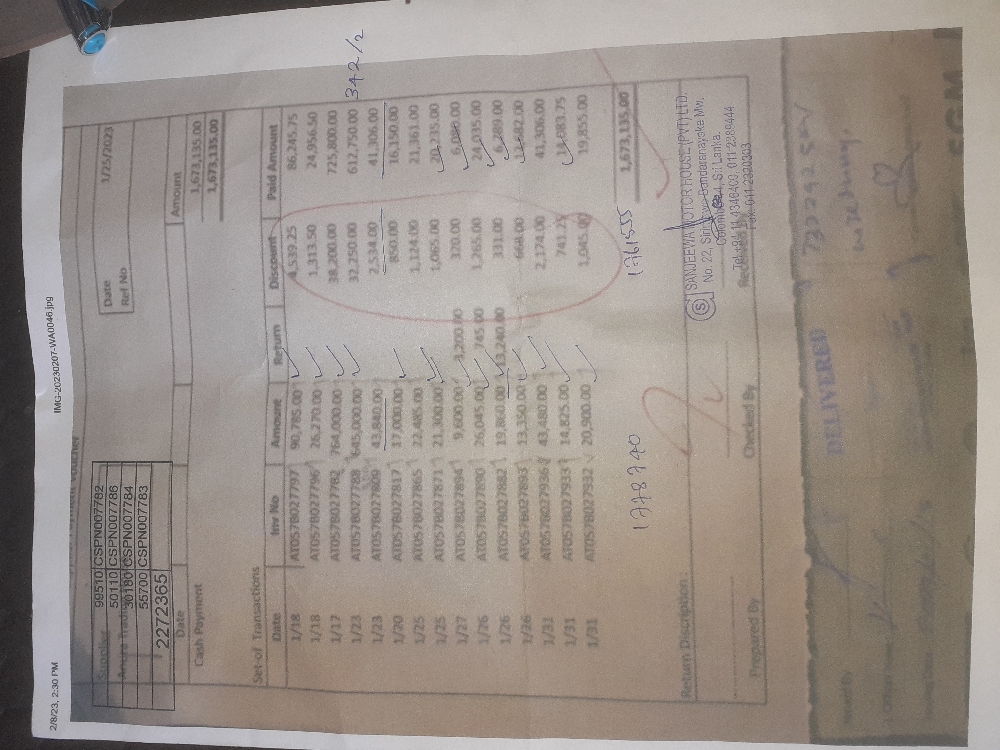 2/8/23, 2:30 PM IMG-20230207-WA0046.jpg
Payment Voucher
Supplier
99510 CSPN007782
50110 CSPN007786
30180 CSPN007784
55700 CSPN007783
2272365
Date 1/25/2023
Ref No
Date Amount
Cash Payment 1,673,135.00
1,673,135.00
Set-of Transactions
Date Inv No Amount Return Discount Paid Amount
1/18 AT057B027797 90,785.00 4,539.25 86,245.75
1/18 AT057B027796 26,270.00 1,313.50 24,956.50
1/17 AT057B027782 764,000.00 38,200.00 725,800.00
1/23 AT057B027788 645,000.00 32,250.00 612,750.00 342/2
1/23 AT057B027809 43,840.00 2,534.00 41,306.00
1/20 AT057B027817 17,000.00 850.00 16,150.00
1/25 AT057B027865 22,485.00 1,124.00 21,361.00
1/25 AT057B027871 21,300.00 1,065.00 20,235.00
1/27 AT057B027894 9,600.00 3,200.00 320.00
1/26 AT057B027890 26,045.00 745.00 1,265.00 24,035.00
1/26 AT057B027882 19,860.00 13,240.00 331.00 6,289.00
1/26 AT057B027893 13,350.00 668.00
1/31 AT057B027936 43,480.00 2,174.00 41,306.00
1/31 AT057B027933 14,825.00 741.25 14,083.75
1/31 AT057B027932 20,900.00 1,045.00 19,855.00
1778740 1761555 1,673,135.00
Return Discription :
SANJEEWA MOTOR HOUSE (PVT) LTD.
No. 22, Sirimavo Bandaranayake Mw,
Colombo 14, Sri Lanka.
Tel: +94 11 4346400, 011-2389444
Fax: 011-2320303
Prepared By Checked By
DELIVERED